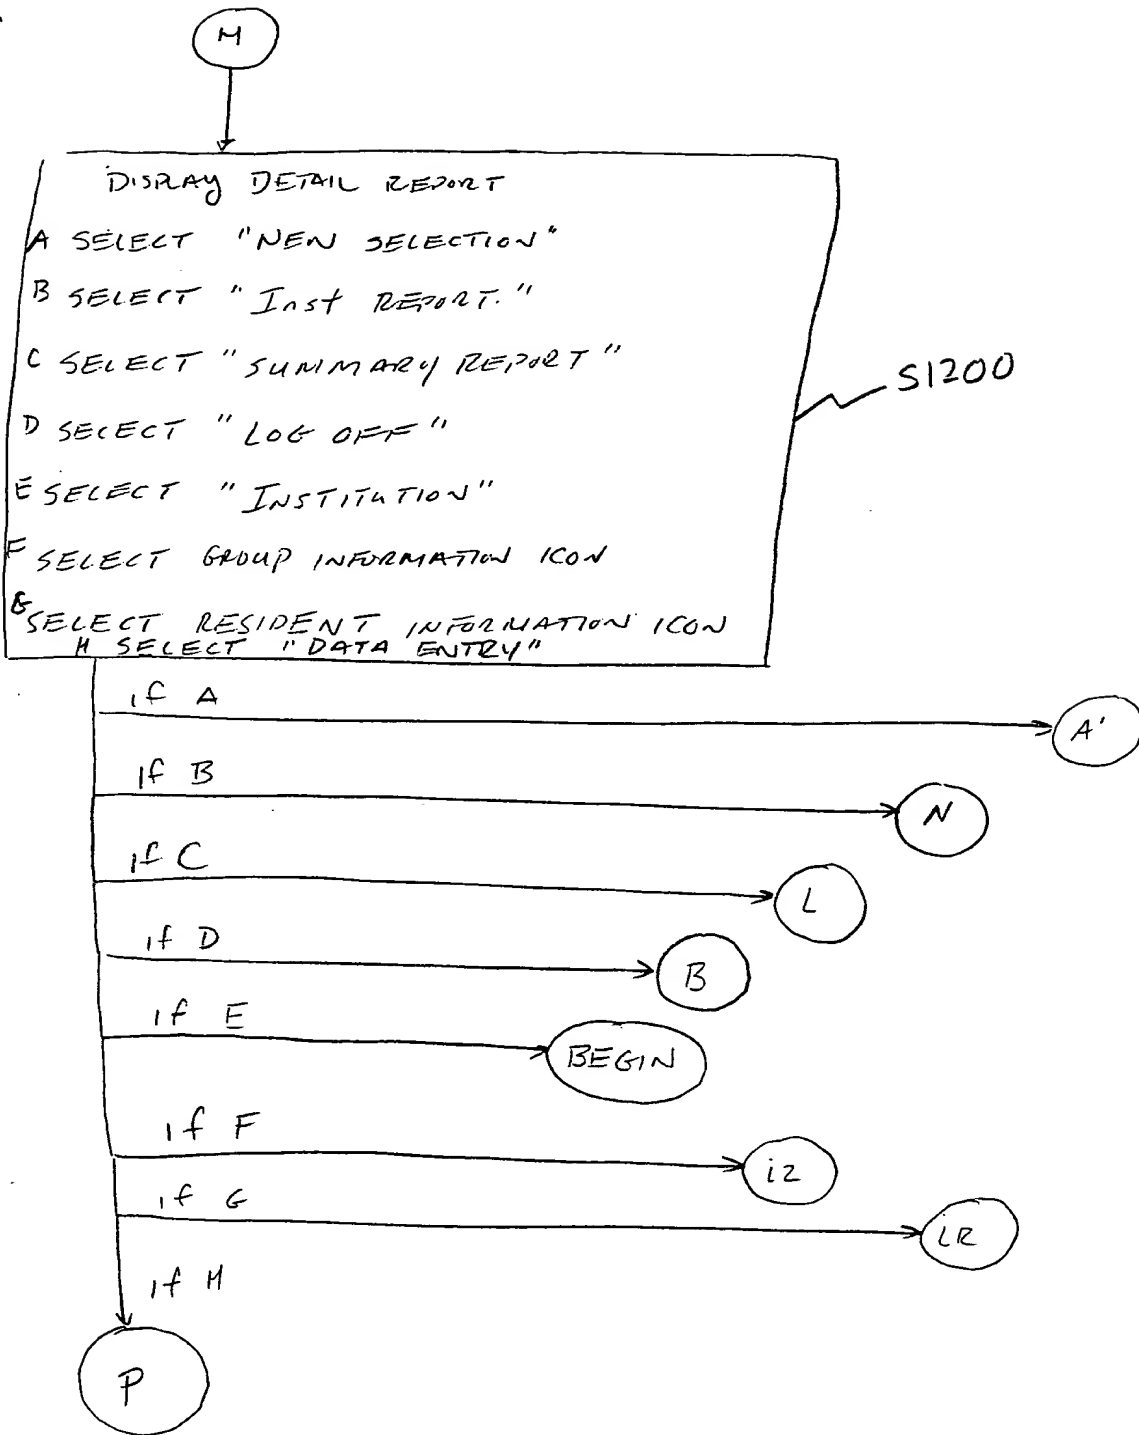 M
DISPLAY DETAIL REPORT
A SELECT "NEW SELECTION"
B SELECT "Inst REPORT."
C SELECT "SUMMARY REPORT"
S1200
D SELECT "LOG OFF"
E SELECT "INSTITUTION"
F SELECT GROUP INFORMATION ICON
G SELECT RESIDENT INFORMATION ICON
H SELECT "DATA ENTRY"
if A
A'
if B
N
if C
L
if D
B
if E
BEGIN
if F
i2
if G
iR
if H
P